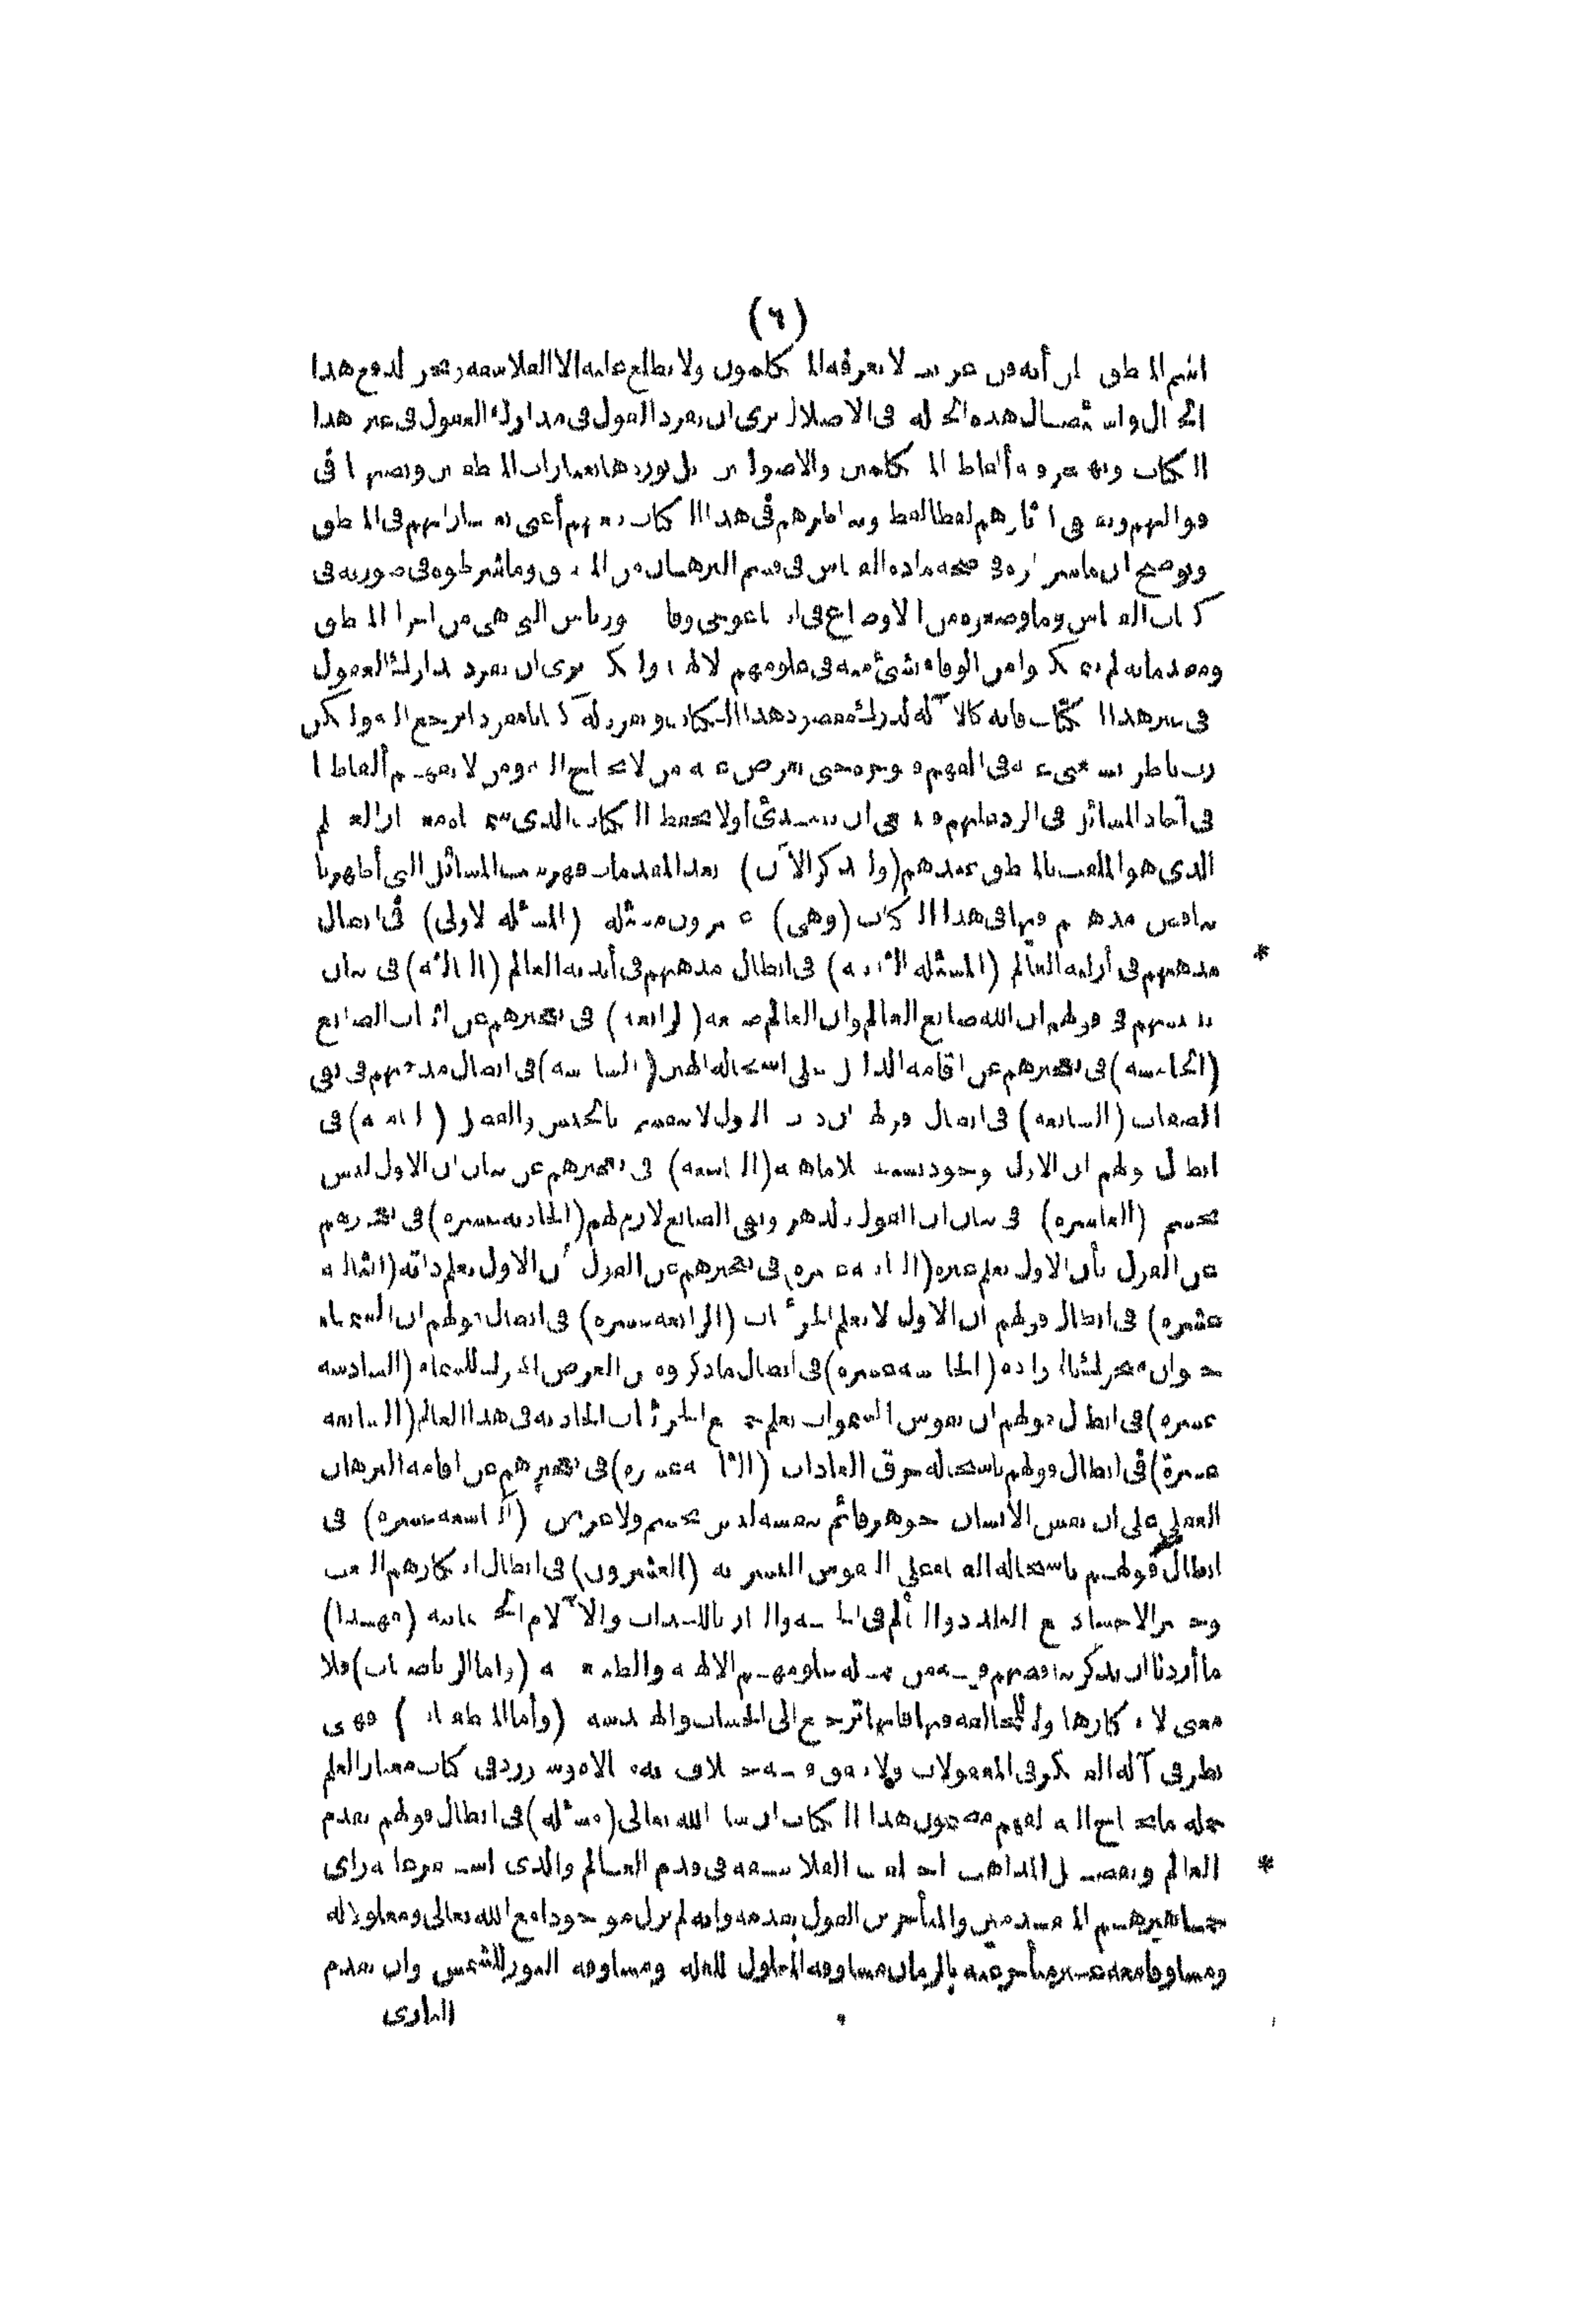 (٦)
اسم المنطق ظن أنه فن غريب لا يعرفه المتكلمون ولا يطلع عليه الا الفلاسفة ونحن لدفع هذا
الخبال واستئصال هذه الحيلة فى الاضلال نرى ان نفرد القول فى مدارك العقول فى غير هذا
الكتاب ونهجر فيه ألفاظ المتكلمين والاصوليين بل نوردها بعبارات المنطقيين ونصبها فى
قوالبهم ونقتفى آثارهم لفظا لفظا ونناظرهم فى هذا الكتاب بلغتهم أعنى بعباراتهم فى المنطق
ونوضح ان ما شرطوه فى صحة مادة القياس فى قسم البرهان من المنطق وما شرطوه فى صورته فى
كتاب القياس وما وضعوه من الاوضاع فى ايساغوجى وقاطيغورياس التى هى من أجزاء المنطق
ومقدماته لم يتمكنوا من الوفاء بشئ منه فى علومهم الالهية ولكنا نرى ان نفرد مدارك العقول
فى غير هذا الكتاب فانه كالآلة لدرك مقصود هذا الكتاب ونفرد له كتابا مفردا يرجع اليه ولكن
رب ناظر يستغنى عنه فى الفهم فنؤخره حتى يعرض عنه من لا يحتاج اليه ومن لا يفهم ألفاظنا
فى آحاد المسائل فى الرد عليهم فينبغى ان يبتدئ أولا بحفظ الكتاب الذى سميناه معيار العلم
الذى هو الملقب بالمنطق عندهم (ولنذكر الآن) بعد المقدمات فهرست المسائل التى أظهرنا
تناقض مذهبهم فيها فى هذا الكتاب (وهى) عشرون مسئلة (المسئلة الاولى) فى ابطال
مذهبهم فى أزلية العالم (المسئلة الثانية) فى ابطال مذهبهم فى أبدية العالم (الثالثة) فى بيان
تلبيسهم فى قولهم ان الله صانع العالم وان العالم صنعه (الرابعة) فى تعجيزهم عن اثبات الصانع
(الخامسة) فى تعجيزهم عن اقامة الدليل على استحالة الهين (السادسة) فى ابطال مذهبهم فى نفى
الصفات (السابعة) فى ابطال قولهم ان ذات الاول لا ينقسم بالجنس والفصل (الثامنة) فى
ابطال قولهم ان الاول وجود بسيط بلا ماهية (التاسعة) فى تعجيزهم عن بيان ان الاول ليس
بجسم (العاشرة) فى بيان ان القول بالدهر ونفى الصانع لازم لهم (الحادية عشرة) فى تعجيزهم
عن القول بأن الاول يعلم غيره (الثانية عشرة) فى تعجيزهم عن القول بأن الاول يعلم ذاته (الثالثة
عشرة) فى ابطال قولهم ان الاول لا يعلم الجزئيات (الرابعة عشرة) فى ابطال قولهم ان السماء
حيوان متحرك بالارادة (الخامسة عشرة) فى ابطال ما ذكروه من الغرض المحرك للسماء (السادسة
عشرة) فى ابطال قولهم ان نفوس السموات تعلم جميع الجزئيات الحادثة فى هذا العالم (السابعة
عشرة) فى ابطال قولهم باستحالة خرق العادات (الثامنة عشرة) فى تعجيزهم عن اقامة البرهان
العقلى على ان نفس الانسان جوهر قائم بنفسه ليس بجسم ولا عرض (التاسعة عشرة) فى
ابطال قولهم باستحالة الفناء على النفوس البشرية (العشرون) فى ابطال انكارهم البعث
وحشر الاجساد مع التلذذ والتألم فى الجنة والنار باللذات والآلام الجسمانية (فهذا)
ما أردنا ان نذكر تناقضهم فيه من جملة علومهم الالهية والطبيعية (وأما الرياضيات) فلا
معنى لانكارها ولا للمخالفة فيها فانها ترجع الى الحساب والهندسة (وأما المنطقيات) فهى
نظر فى آلة الفكر فى المعقولات ولا يتفق فيه خلاف به مبالاة وسنورد فى كتاب معيار العلم
جملة ما يحتاج اليه لفهم مضمون هذا الكتاب ان شاء الله تعالى (مسئلة) فى ابطال قولهم بقدم
العالم وتفصيل المذاهب اختلفت الفلاسفة فى قدم العالم والذى استقر عليه رأى
جماهيرهم المتقدمين والمتأخرين القول بقدمه وانه لم يزل موجودا مع الله تعالى ومعلولا له
ومساوقا معه غير متأخر عنه بالزمان مساوقة المعلول للعلة ومساوقة النور للشمس وان تقدم
البارى